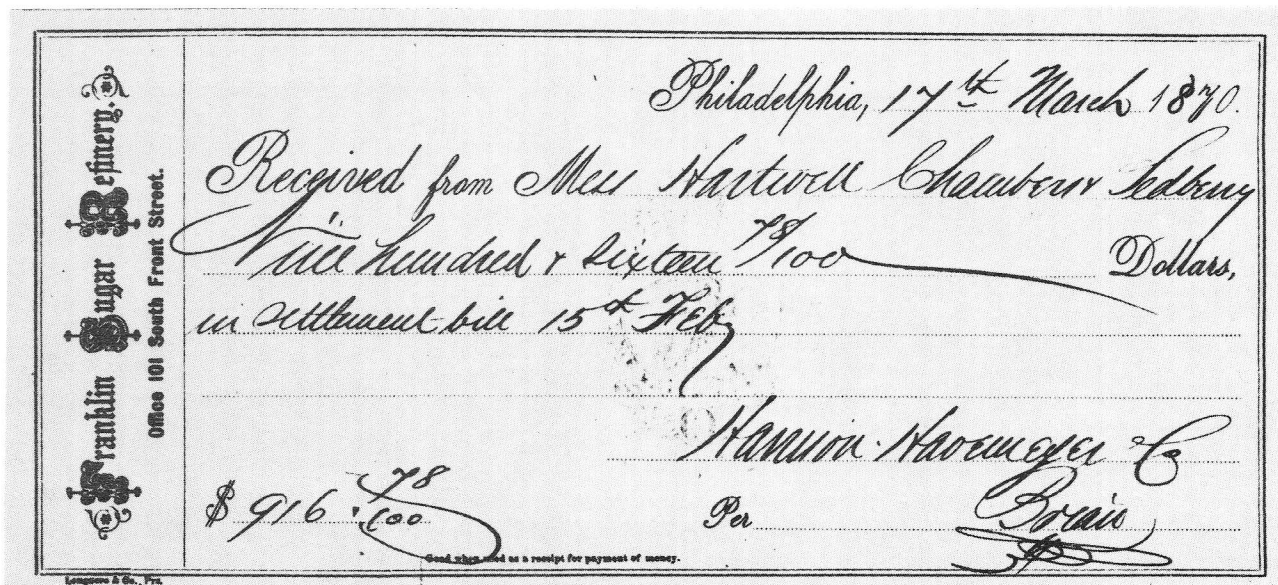 Franklin Sugar Refinery.
Office 101 South Front Street.
Philadelphia, 17th March 1870.
Received from Mess Hartwell Chambers & Sedberry
Nine hundred & Sixteen 78/100 Dollars,
in settlement bill 15th Feby
Harrison Havemeyer & Co
$ 916 . 78/100
Per
Good when used as a receipt for payment of money.